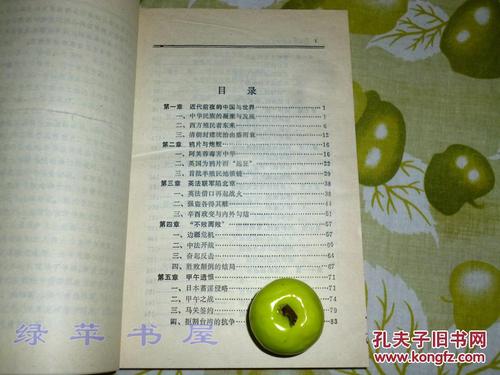 目录
第一章 近代前夜的中国与世界 1
一、中华民族的凝聚与发展 1
二、西方殖民者东来 6
三、清朝封建统治由盛而衰 12
第二章 鸦片与炮舰 16
一、阿芙蓉毒害中华 16
二、英国为鸦片而“远征”
三、首批半殖民地锁链
第三章 英法联军陷北京 38
一、英法借口再起战火 38
二、强盗各得其酬
三、辛酉政变与内外勾结
第四章 “不败而败” 57
一、边疆危机 57
二、中法开战
三、奋起反击
四、胜败颠倒的结局 67
第五章 甲午遗恨 71
一、日本蓄谋侵略 71
二、甲午之战 74
三、马关签约
四、拒割台湾的抗争 83
绿苹书屋
孔夫子旧书网
www.kongfz.com